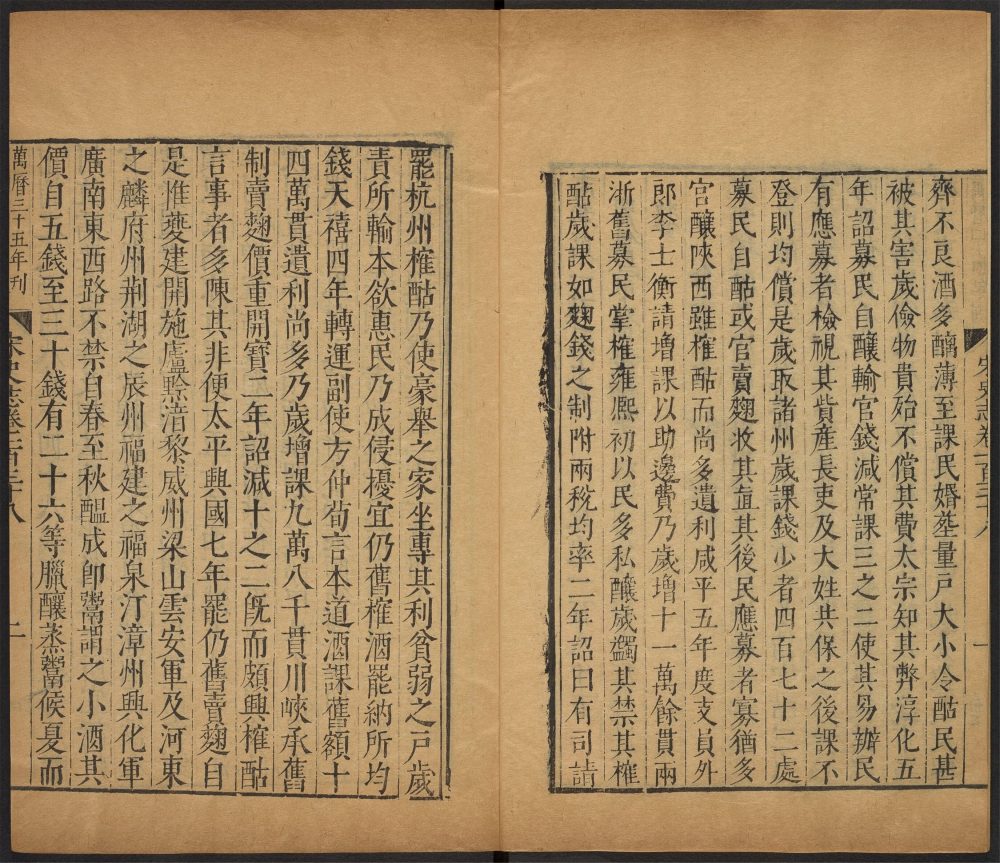 齊不良酒多醨薄至課民婚塟量戸大小令酤民甚
被其害歲儉物貴殆不償其費太宗知其弊淳化五
年詔募民自釀輸官錢減常課三之二使其易辦民
有應募者檢視其貲産長吏及大姓共保之後課不
登則均償是歲取諸州歲課錢少者四百七十二處
募民自酤或官賣麴收其直其後民應募者寡猶多
官釀陜西雖榷酤而尚多遺利咸平五年度支員外
郎李士衡請增課以助邊費乃歲增十一萬餘貫兩
浙舊募民掌榷雍熙初以民多私釀歲蠲其禁其榷
酤歲課如麴錢之制附兩稅均率二年詔曰有司請
宋史志卷一百三十八
一
罷杭州榷酤乃使豪舉之家坐專其利貧弱之戸歲
責所輸本欲惠民乃成侵擾宜仍舊榷酒罷納所均
錢天禧四年轉運副使方仲荀言本道酒課舊額十
四萬貫遺利尚多乃歲增課九萬八千貫川峽承舊
制賣麴價重開寶二年詔減十之二旣而頗興榷酤
言事者多陳其非便太平興國七年罷仍舊賣麴自
是惟夔建開施廬黔涪黎威州梁山雲安軍及河東
之麟府州荆湖之辰州福建之福泉汀漳州興化軍
廣南東西路不禁自春至秋醖成卽鬻謂之小酒其
價自五錢至三十錢有二十六等臘釀蒸鬻候夏而
萬曆三十五年刊
宋史志卷一百三十八
二